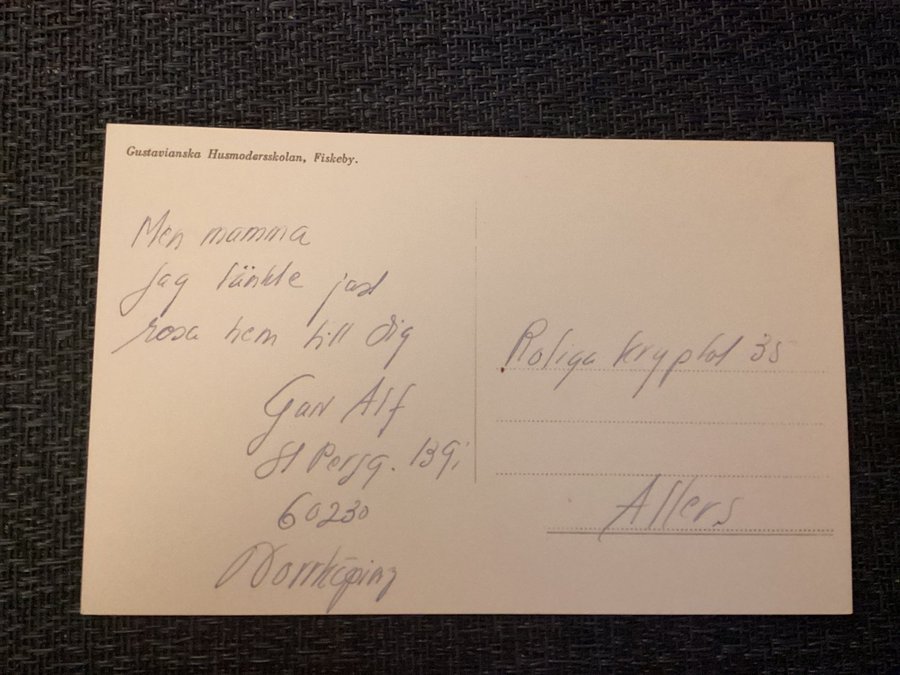 Gustavianska Husmodersskolan, Fiskeby.
Men mamma
jag tänkte just
resa hem till dig
Gun Alf
St Persg. 139,
60230
Norrköping
Roliga kryptot 35
Allers